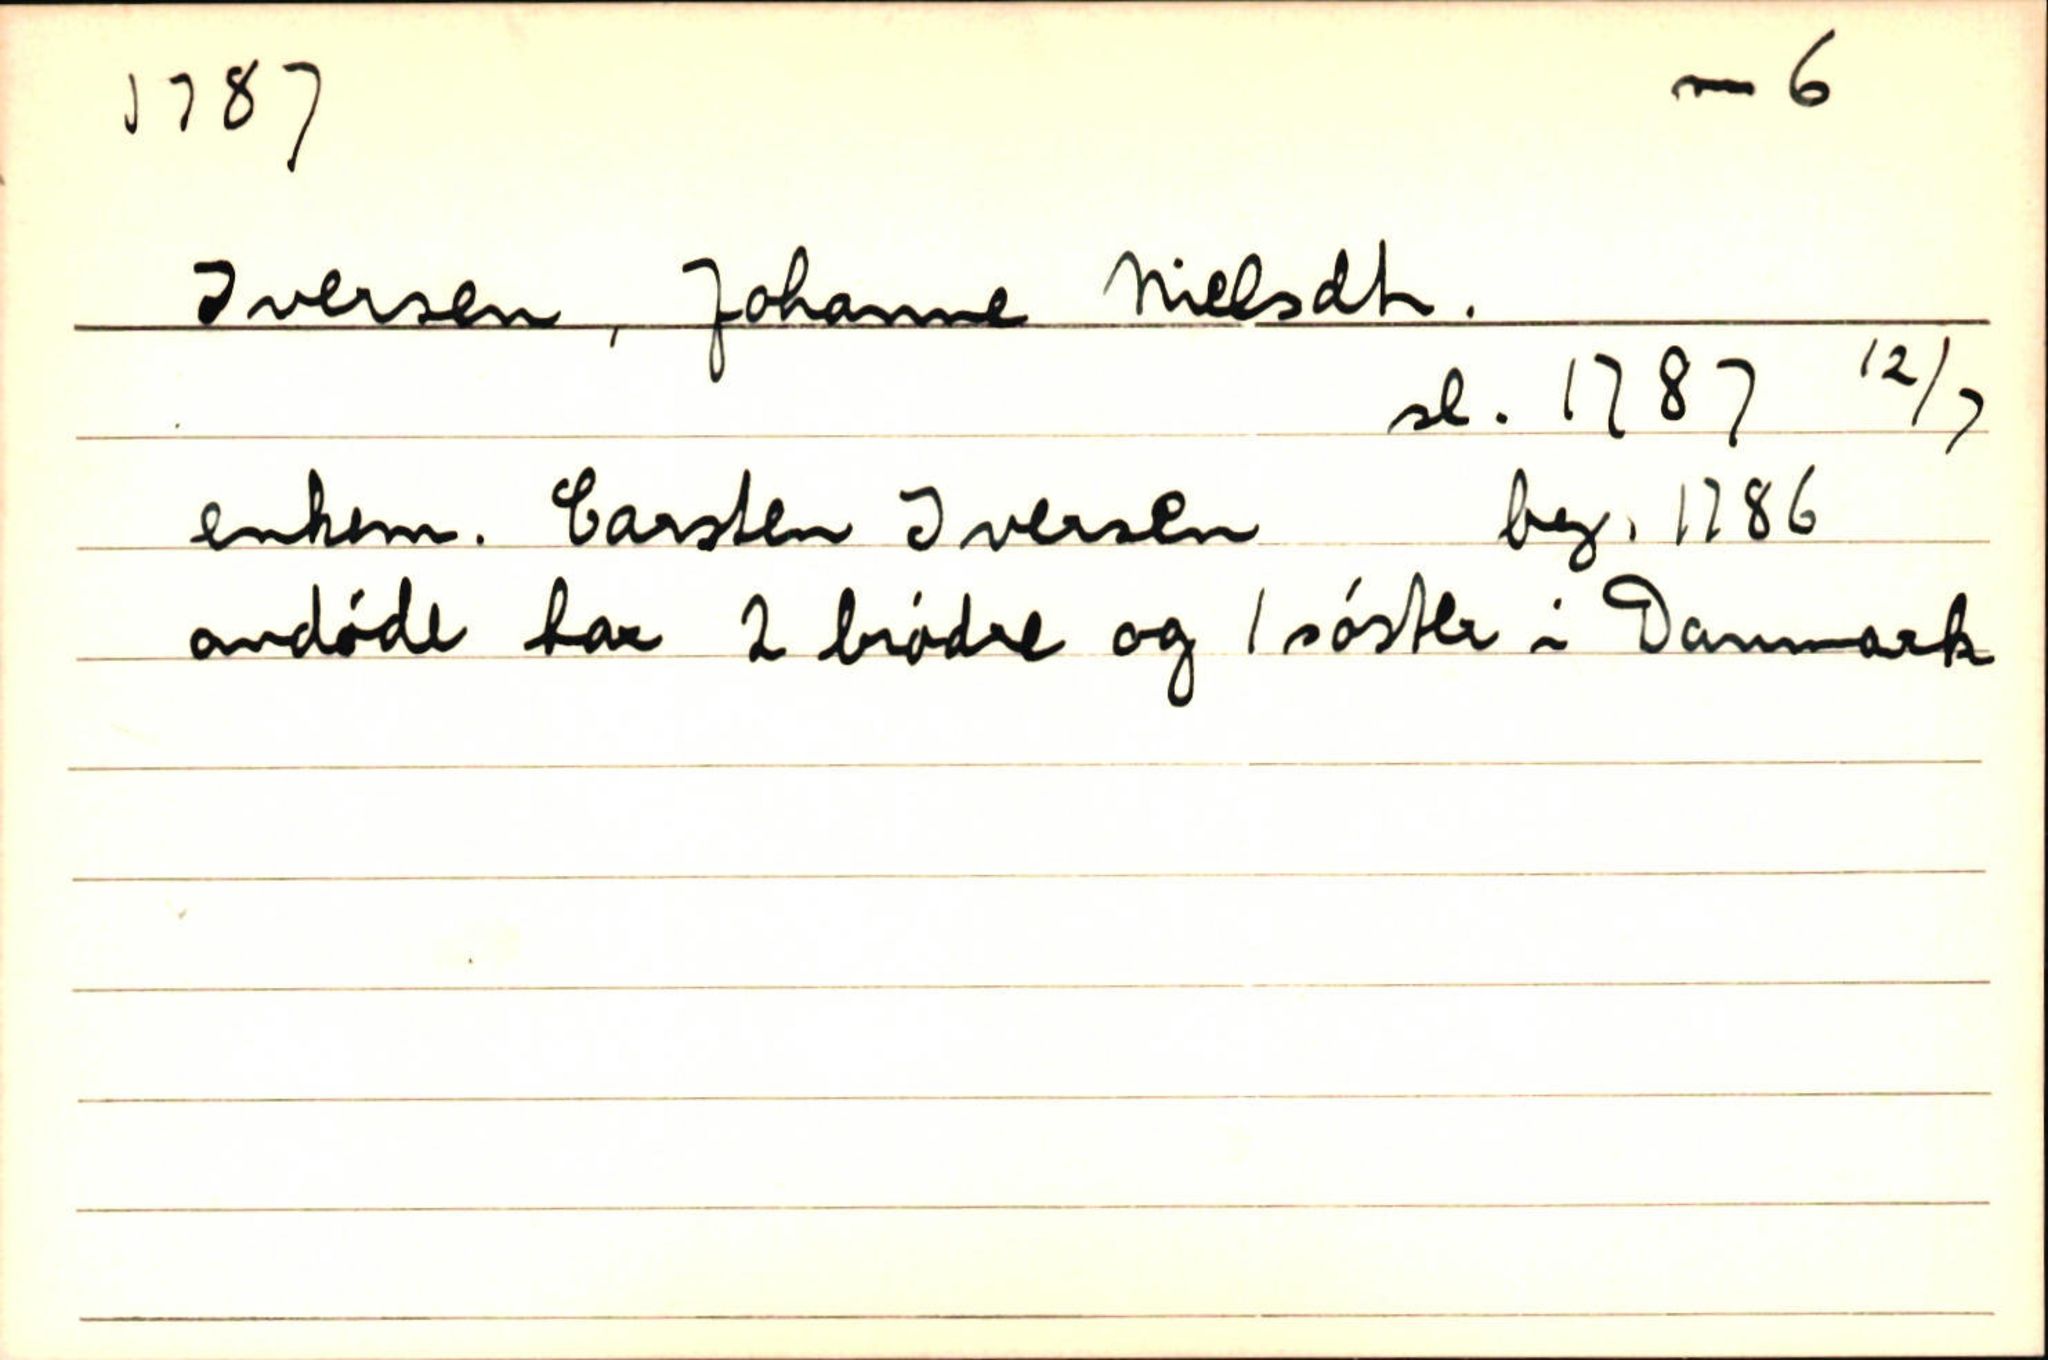 1787 6
Iversen, Johanne Nielsdt.
sl. 1787 12/7
enkem. Carsten Iversen beg. 1786
avdøde har 2 brødre og 1 søster i Danmark